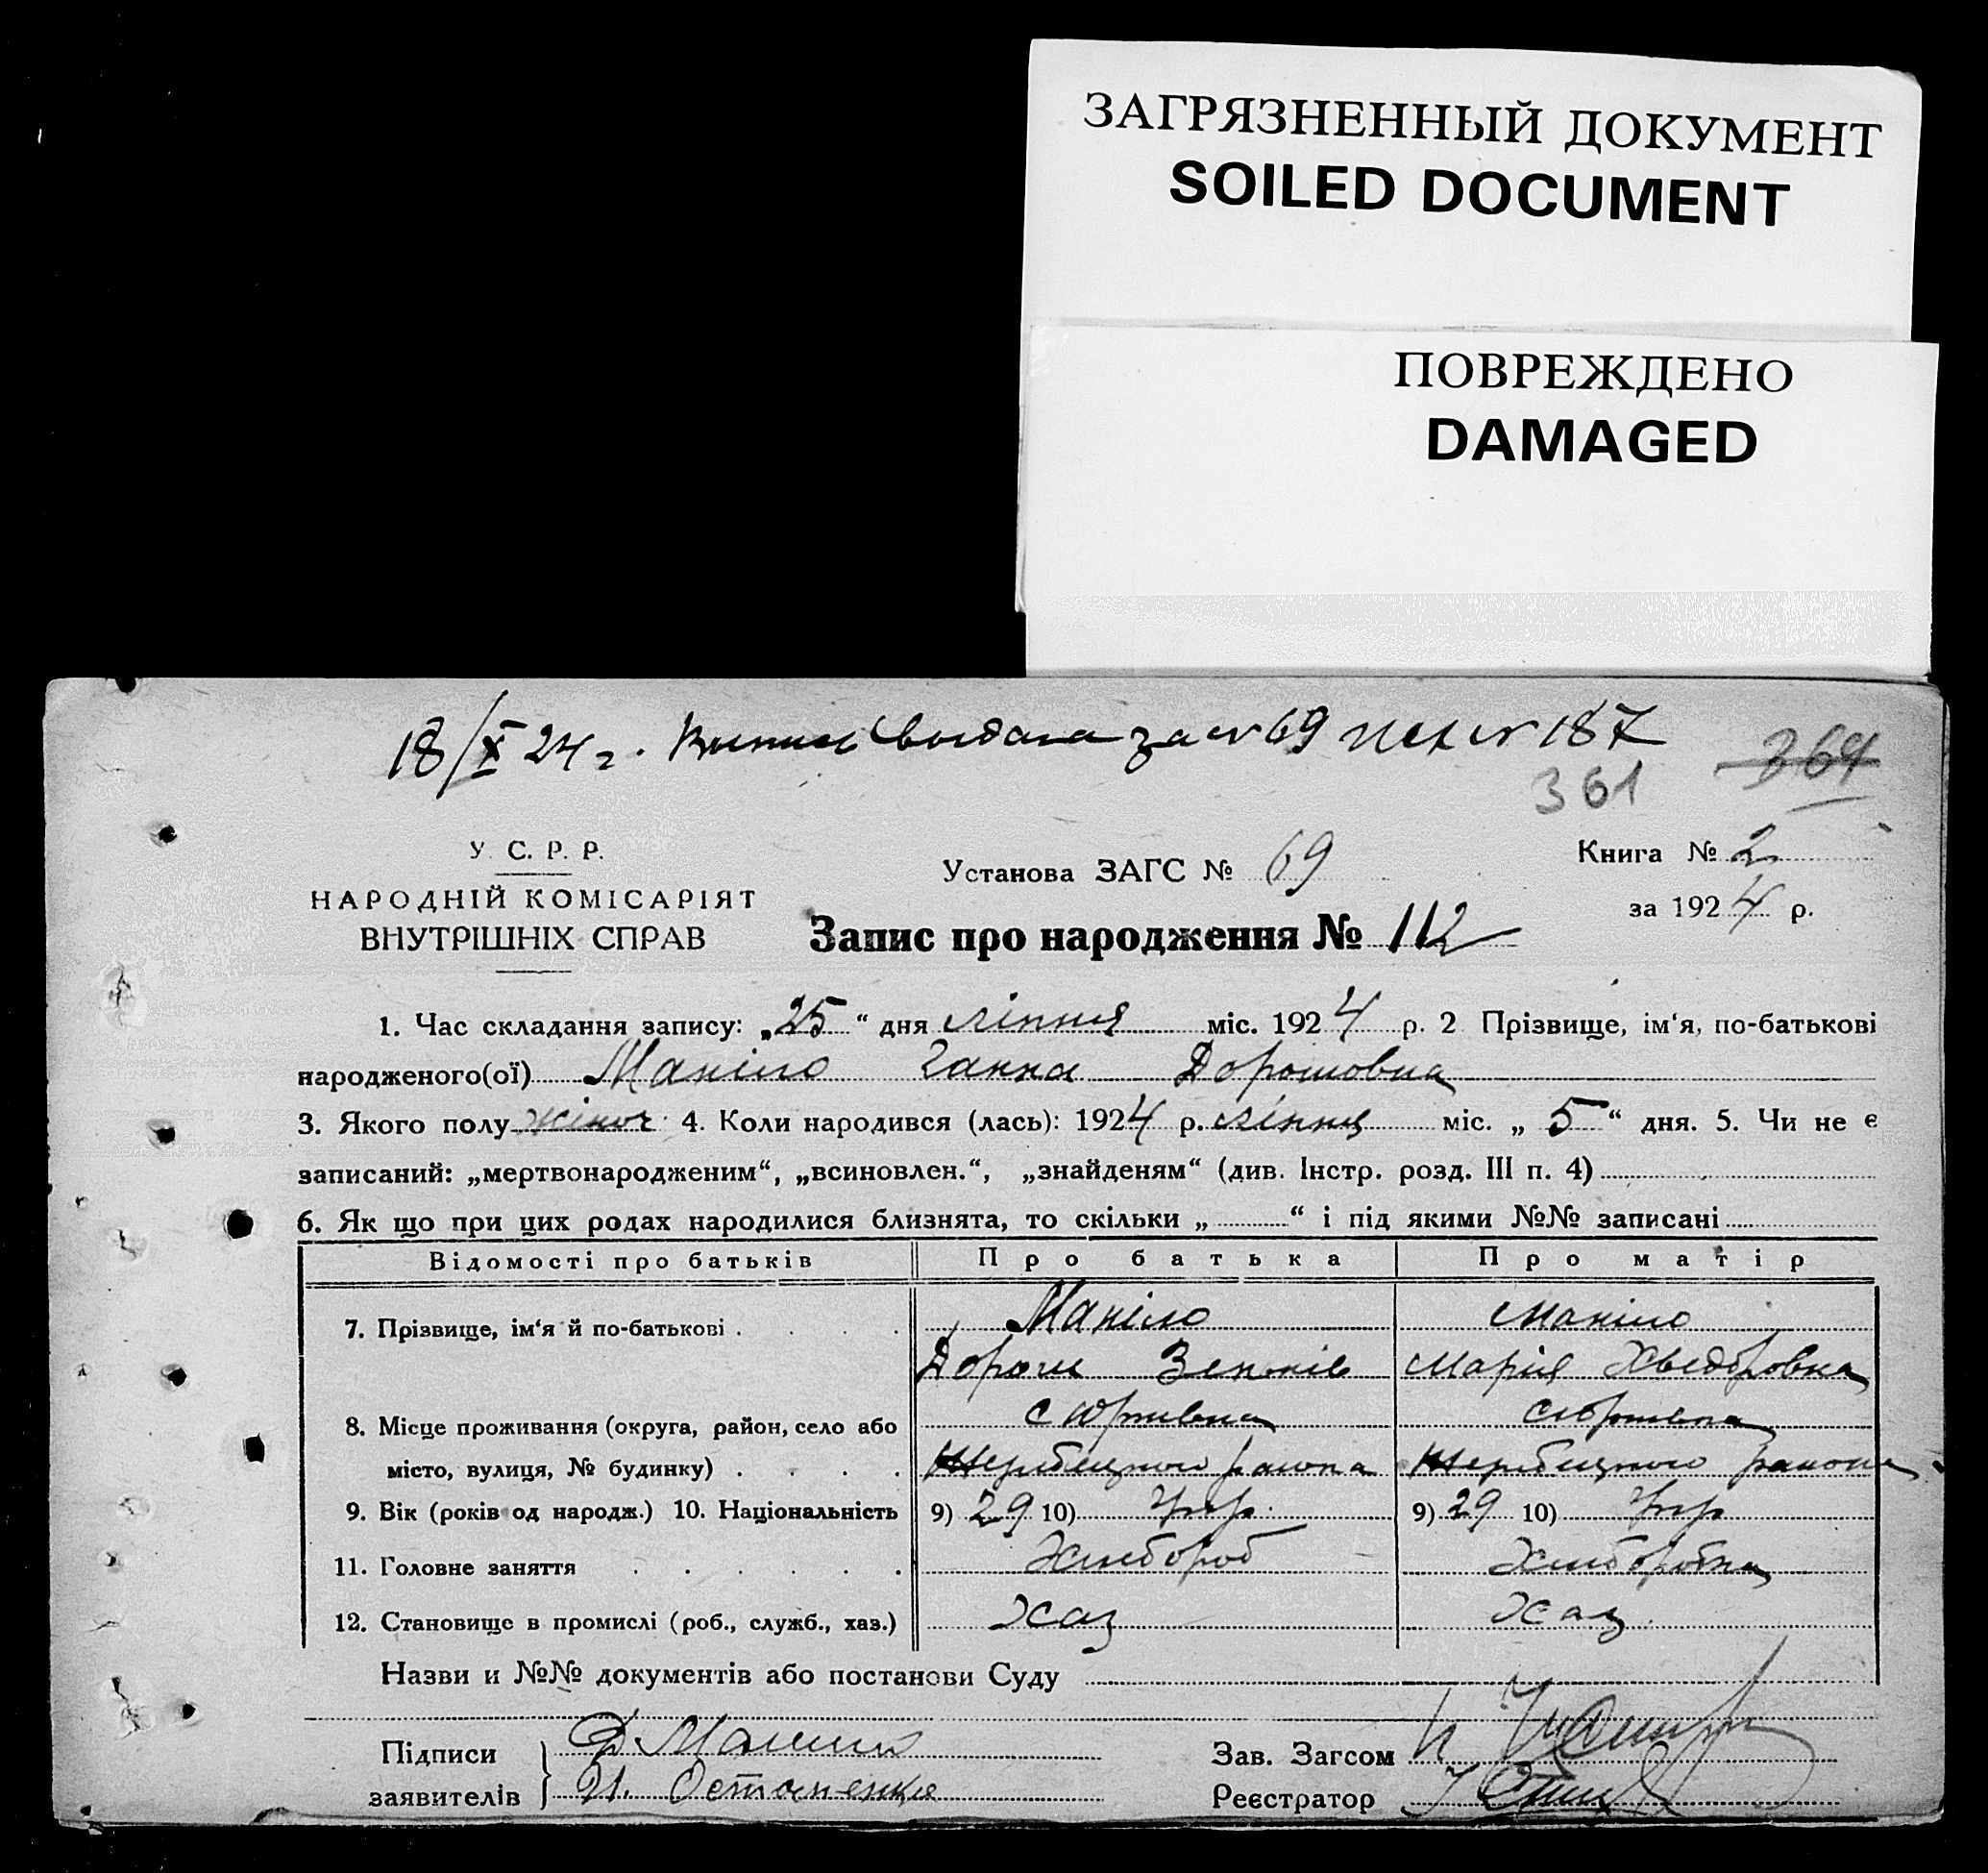 ЗАГРЯЗНЕННЫЙ ДОКУМЕНТ
SOILED DOCUMENT
ПОВРЕЖДЕНО
DAMAGED
18/X 24 г. выдана за № 69 исх № 187
361 364
У. С. Р. Р.
НАРОДНІЙ КОМІСАРІЯТ
ВНУТРІШНІХ СПРАВ
Установа ЗАГС № 69
Книга № 2
за 1924 р.
Запис про народження № 112
1. Час складання запису: „25“ дня ліпня міс. 1924 р. 2 Прізвище, ім‘я, по-батькові
народженого(ої) Маніло Ганна Дорошовна
3. Якого полу жіноч. 4. Коли народився (лась): 1924 р. ліпня міс. „5“ дня. 5. Чи не є
записаний: „мертвонародженим“, „всиновлен.“, „знайденям“ (див. Інстр. розд. III п. 4)
6. Як що при цих родах народилися близнята, то скільки „ “ і під якими №№ записані
Відомості про батьків Про батька Про матір
7. Прізвище, ім‘я й по-батькові Маніло Маніло
Дорош Марія Хведоровна
8. Місце проживання (округа, район, село або с Юрківка с Юрківка
місто, вулиця, № будинку) района района
9. Вік (років од народж.) 10. Національність 9) 29 10) Укр. 9) 29 10) Укр
11. Головне заняття Хлібороб Хліборобка
12. Становище в промислі (роб., служб., хаз.) Хаз Хаз.
Назви и №№ документів або постанови Суду
Підписи Д Маніло Зав. Загсом
заявителів И. Остапенко Реєстратор